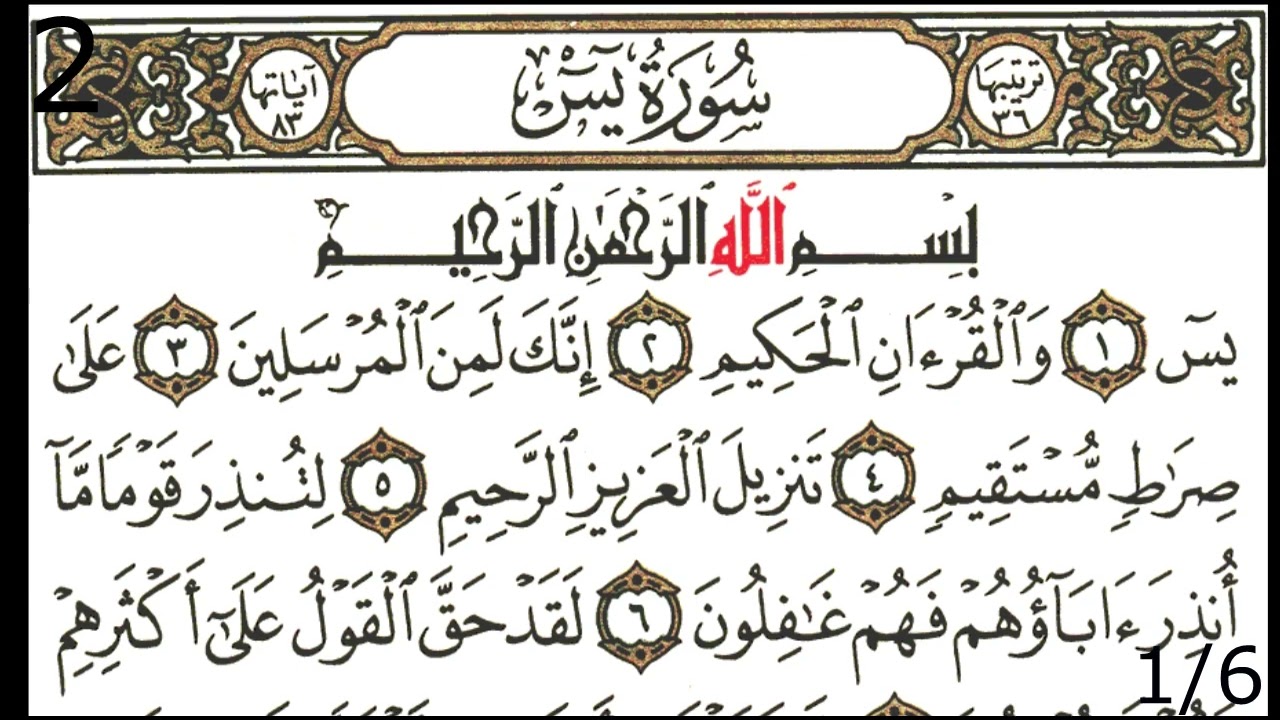 2
ترتيبها ٣٦
سُورَةُ يسٓ
آياتها ٨٣
بِسْمِ ٱللَّهِ ٱلرَّحْمَٰنِ ٱلرَّحِيمِ
يسٓ ١ وَٱلْقُرْءَانِ ٱلْحَكِيمِ ٢ إِنَّكَ لَمِنَ ٱلْمُرْسَلِينَ ٣ عَلَىٰ
صِرَٰطٍ مُّسْتَقِيمٍ ٤ تَنزِيلَ ٱلْعَزِيزِ ٱلرَّحِيمِ ٥ لِتُنذِرَ قَوْمًا مَّآ
أُنذِرَ ءَابَآؤُهُمْ فَهُمْ غَٰفِلُونَ ٦ لَقَدْ حَقَّ ٱلْقَوْلُ عَلَىٰٓ أَكْثَرِهِمْ
1/6